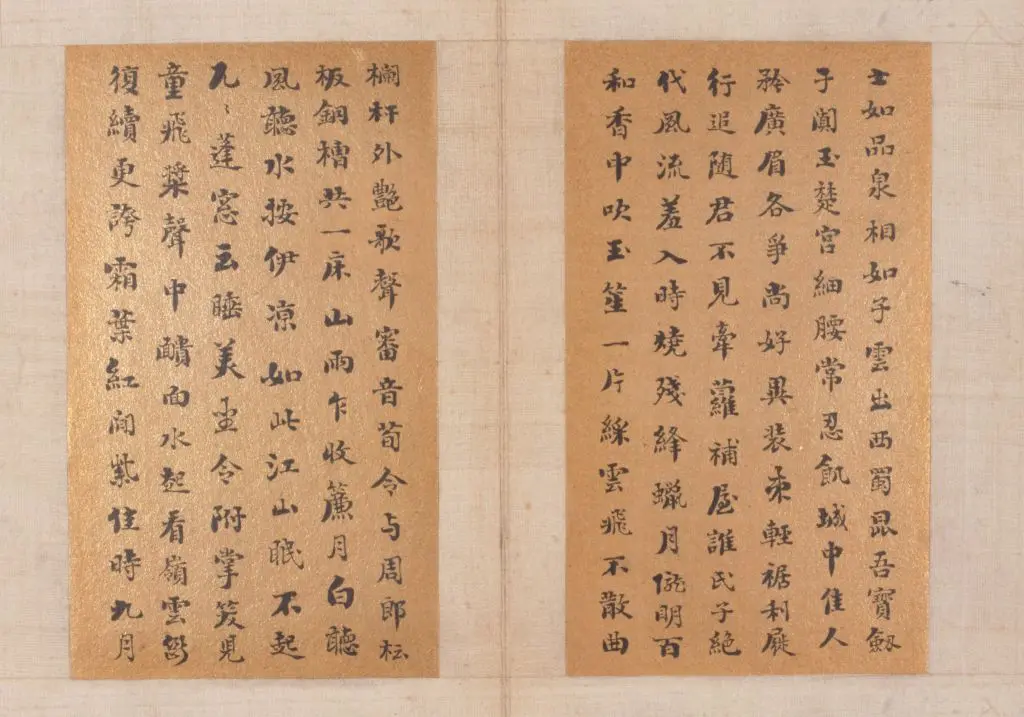 士如品泉相如子雲出西蜀昆吾寶劔
子闐玉楚宮細腰常忍飢城中佳人
矜廣眉各爭尚好異裝束輕裾利屣
行追随君不見牽蘿補屋誰氏子絶
代風流羞入時燒殘絳蠟月朧明百
和香中吹玉笙一片綵雲飛不散曲
欄杆外艷歌聲審音荀令与周郎枟
板銅槽共一床山雨乍收簾月白聽
風聽水按伊凉如此江山眠不起
兀〻蓬窓云睡美坐令附掌笑児
童飛槳聲中靧面水起看嶺雲斷
復續更誇霜葉紅間紫佳時九月